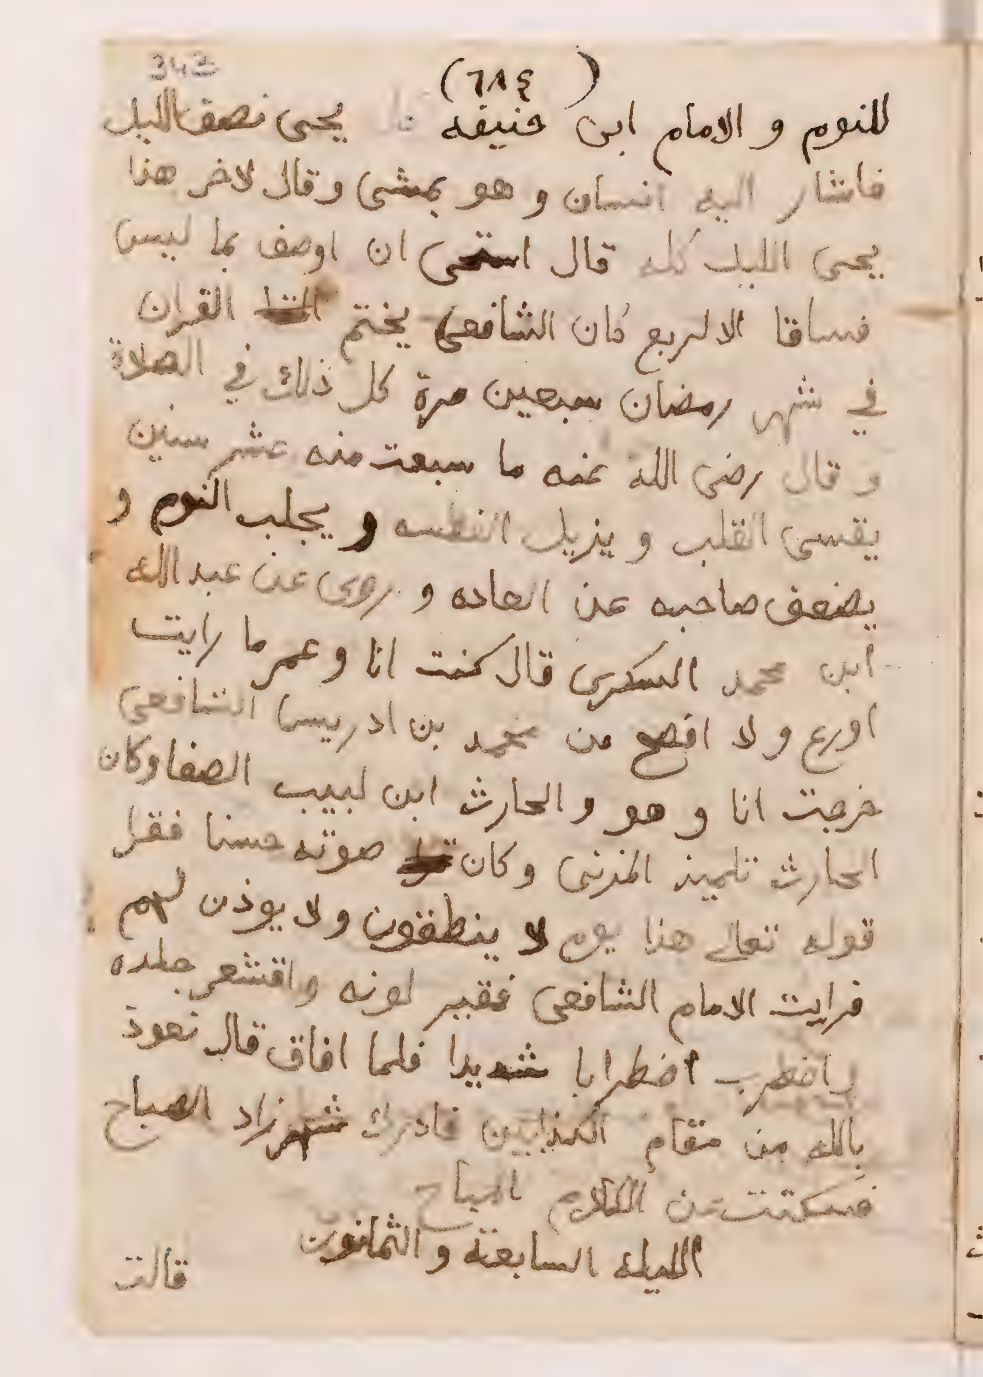 343
(٦٨٤)
للنوم و الامام ابن حنيفه يحيى نصف الليل
فاشار اليه انسان و هو يمشى و قال لاخر هذا
يحيى الليل كله قال استحى ان اوصف بما ليس
الا لربع كان الشافعى يختم القران
في شهر رمضان سبعين مرة كل ذلك في الصلاة
و قال رضى الله عنه ما سبعت منه عشر سنين
يقسى القلب و يزيل الفطنه و يجلب النوم و
يضعف صاحبه عن العاده و روى عن عبد الله
ابن محمد السكرى قال كنت انا و عمر ما رايت
اورع و لا افصح من محمد بن ادريس الشافعى
خرجت انا و هو و الحارث ابن لبيب الصفا وكان
الحارث تلميذ المزنى و كان صوته حسنا فقرا
قوله تعالى هذا يوم لا ينطقون و لا يوذن لهم
فرايت الامام الشافعى لونه واقشعر جلده
واضطرب اضطرابا شديدا فلما افاق قال نعوذ
بالله من مقام الكذابين فادرك شهرزاد الصباح
فسكتت عن الكلام المباح
الليله السابعة و الثمانون
قالت